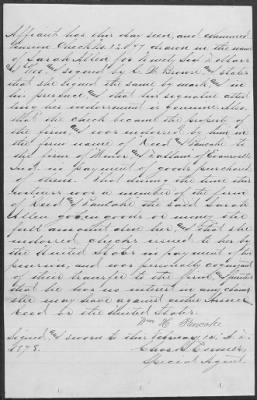 Affiant has this day seen, and examined
Pension Check No. 12,077 drawn in the name
of Sarah Allen for Ninety Six Dollars
and signed by C. W. Brown and states
that she signed the same by mark and in
his presence, and that his signature attest-
ing her endorsement is genuine. Also
that the check became the property of
the firm, and was endorsed by him in
the firm name of Reed and Pancake to
the firm of
Ind. in payment of goods purchased
of them. That during the time she
was a member of the firm
of Reed and Pancake the said Sarah
Allen got in goods or money the
full amount due her and that she
endorsed checks issued to her by
the United States in payment of her
pension, and was personally cognizant
of their transfer to the firm and
that he has no interest in any claim
she may have against either
Reed or the United States.
Wm H. Pancake
Signed and sworn to this February 14, A.D.
1878.
Special Agent.